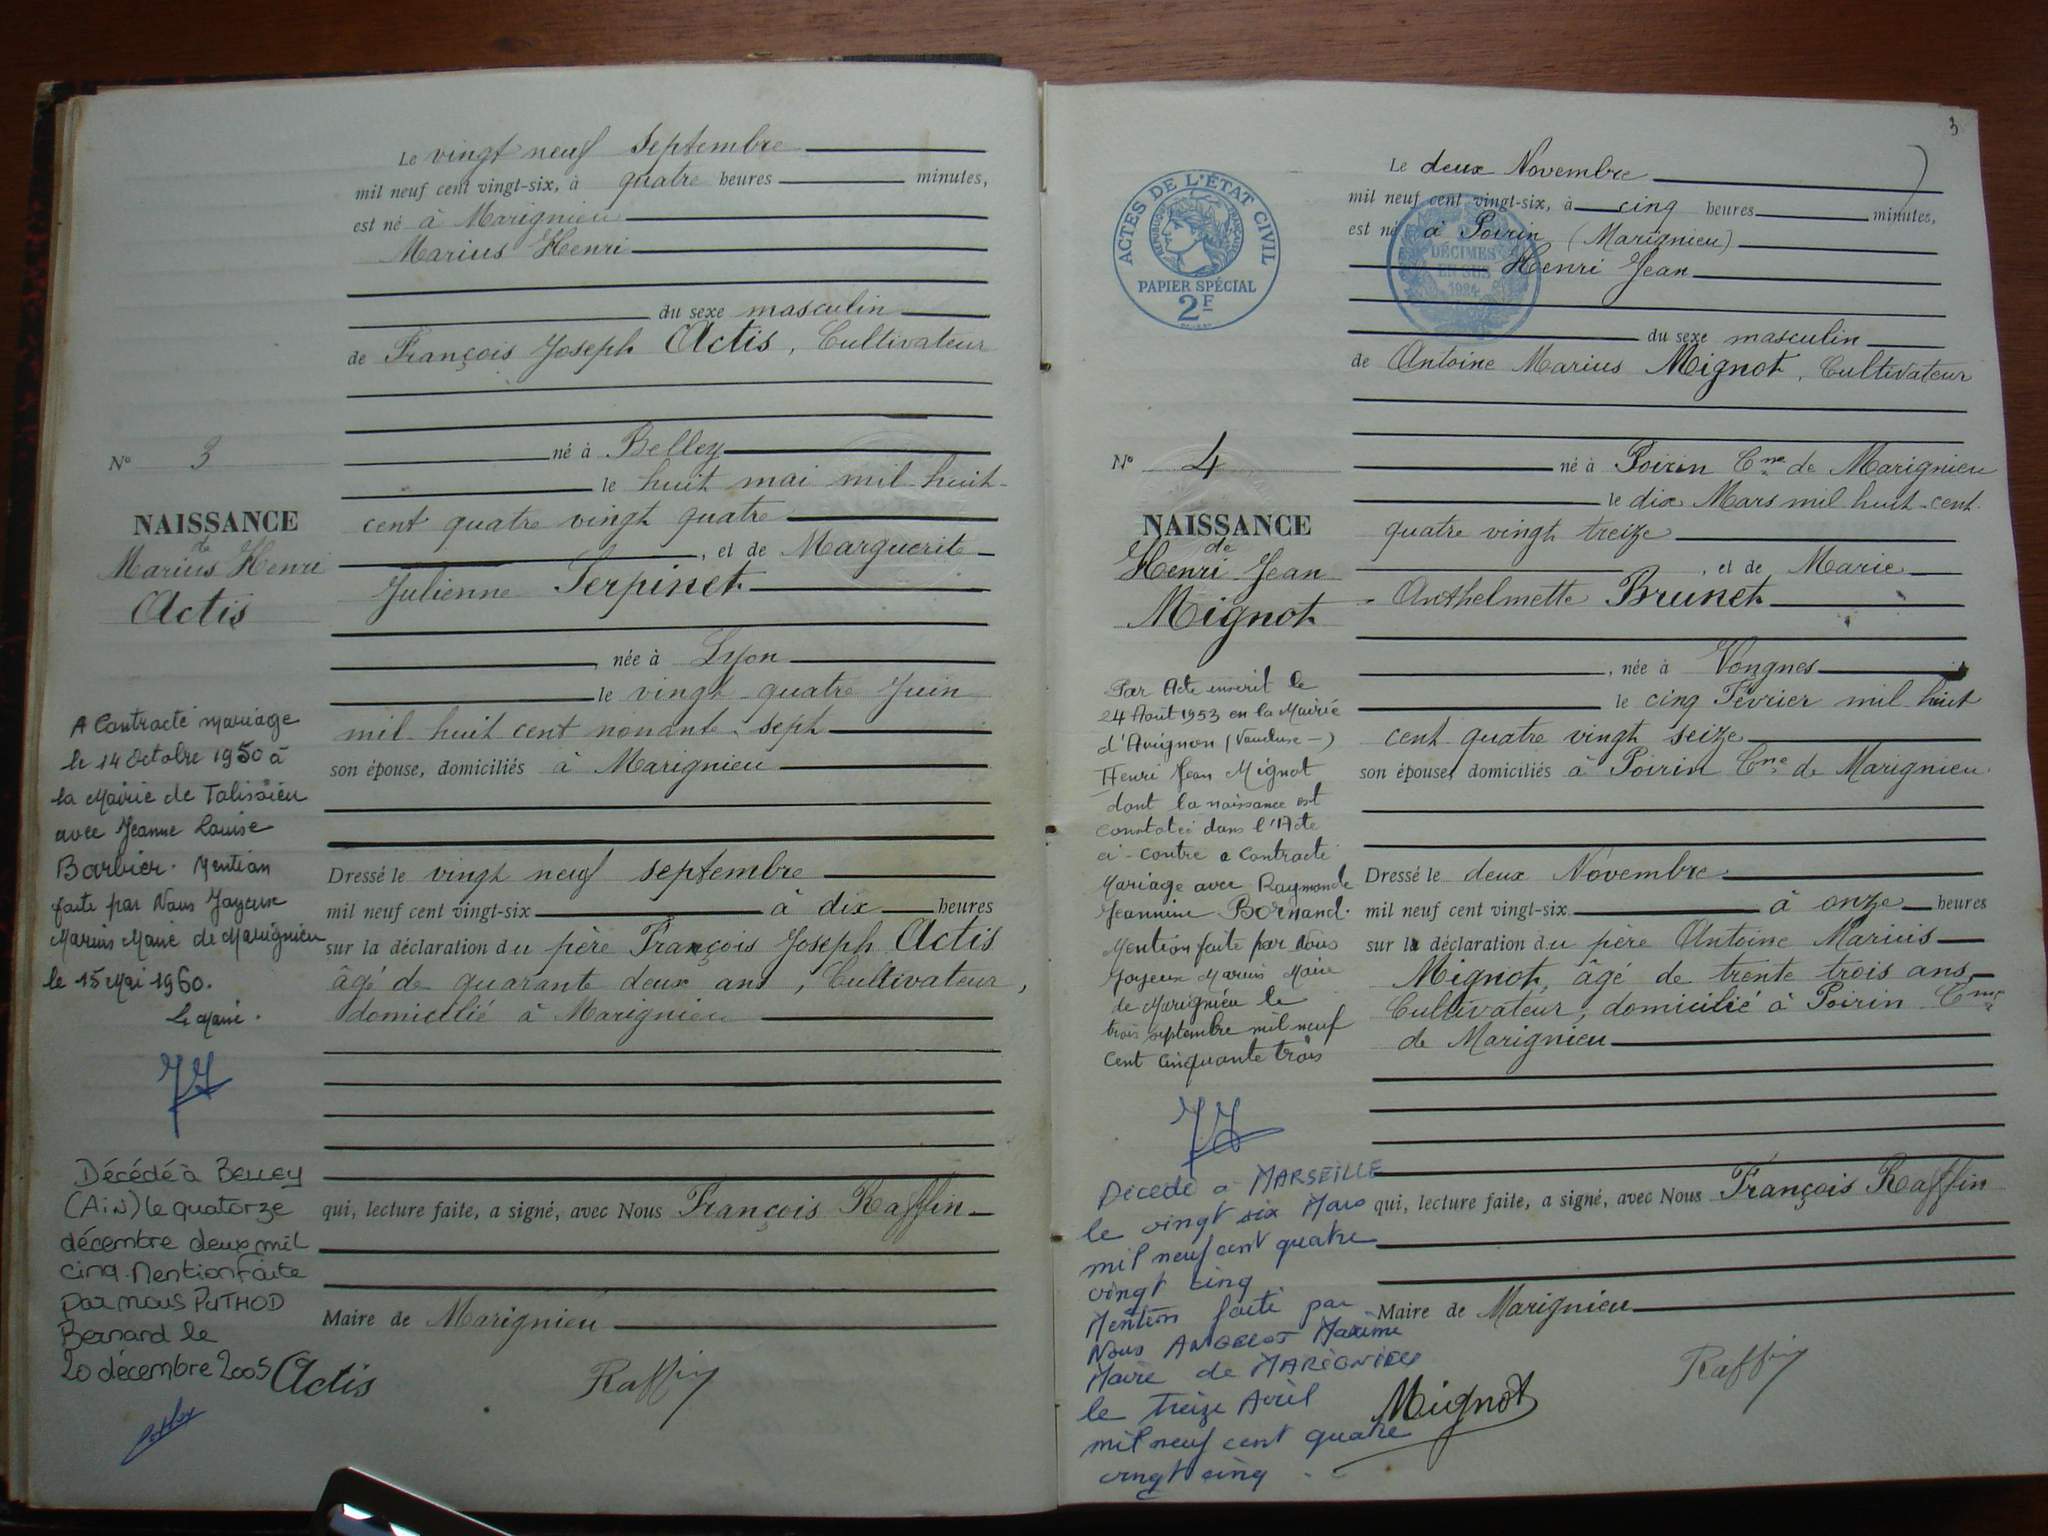 Le vingt neuf septembre
mil neuf cent vingt-six, à quatre heures minutes,
est né à Marignieu
Marius Henri
du sexe masculin
de François Joseph Actis, Cultivateur
N° 3
né à Belley
le huit mai mil huit-
cent quatre vingt quatre
NAISSANCE
de
Marius Henri
Actis
, et de Marguerite
Julienne Serpinet
, née à Lyon
le vingt quatre Juin
mil huit cent nonante sept
son épouse, domiciliés à Marignieu
A Contracté mariage
le 14 Octobre 1950 à
la Mairie de Talissieu
avec Jeanne Louise
Barbier. Mention
faite par Nous Joyeux
Marius Maire de Marignieu
le 15 Mai 1960.
le Maire.
Dressé le vingt neuf septembre
mil neuf cent vingt-six à dix heures
sur la déclaration du père François Joseph Actis
âgé de quarante deux ans, Cultivateur,
domicilié à Marignieu
Décédé à BELLEY
(AiN) le quatorze
décembre deux mil
cinq. Mention faite
par nous PUTHOD
Bernard le
20 décembre 2005
qui, lecture faite, a signé, avec Nous François Raffin
Maire de Marignieu
Actis
Raffin
3
ACTES DE L'ÉTAT CIVIL
RÉPUBLIQUE FRANÇAISE
PAPIER SPÉCIAL
2F
Le deux Novembre
mil neuf cent vingt-six, à cinq heures minutes,
est né à Poirin (Marignieu)
DÉCIMES
EN SUS
1924
Henri Jean
du sexe masculin
de Antoine Marius Mignot, Cultivateur
N° 4
né à Poirin Cne de Marignieu
le dix Mars mil huit-cent
quatre vingt treize
NAISSANCE
de
Henri Jean
Mignot
, et de Marie
Anthelmette Brunet
, née à Vongnes
le cinq Février mil huit
cent quatre vingt seize
son épouse, domiciliés à Poirin Cne de Marignieu.
Par Acte inscrit le
24 Août 1953 en la Mairie
d'Avignon (Vaucluse-)
Henri Jean Mignot
dont la naissance est
constatée dans l'Acte
ci-contre a contracté
Mariage avec Raymonde
Jeannine Bornand.
Mention faite par Nous
Joyeux Marius Maire
de Marignieu le
trois septembre mil neuf
cent cinquante trois
Dressé le deux Novembre
mil neuf cent vingt-six à onze heures
sur la déclaration du père Antoine Marius
Mignot, âgé de trente trois ans,
Cultivateur, domicilié à Poirin Cne
de Marignieu
Décédé à MARSEILLE
le vingt six Mars
mil neuf cent quatre
vingt cinq
Mention faite par
Nous ANGELOT Maxime
Maire de MARIGNIEU
le Treize Avril
mil neuf cent quatre
vingt cinq
qui, lecture faite, a signé, avec Nous François Raffin
Maire de Marignieu
Mignot
Raffin